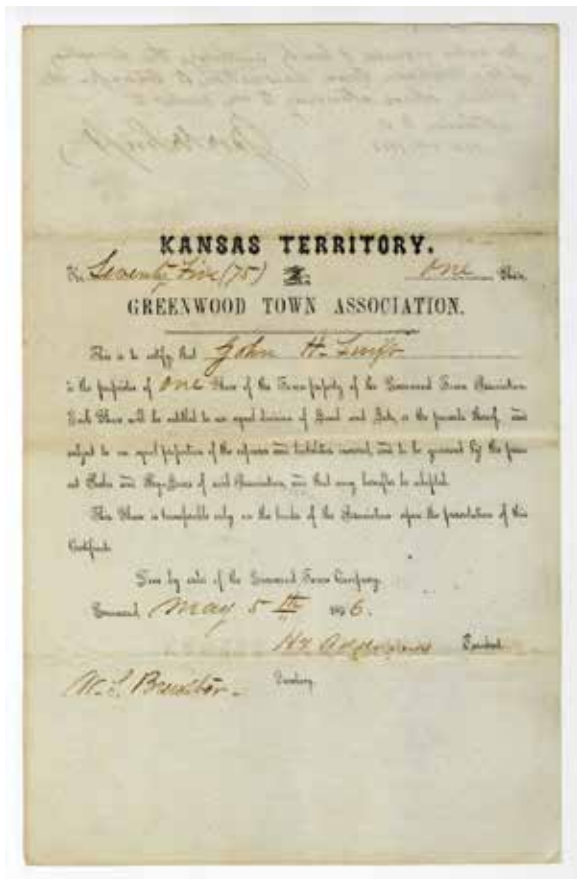 KANSAS TERRITORY.
No. Seventy Five (75) One Share.
GREENWOOD TOWN ASSOCIATION.
This is to certify that John H.
is the proprietor of One Share of the Town property of the Greenwood Town Association.
Each Share will be entitled to an equal division of Land and Lots, or the proceeds thereof, and
subject to an equal proportion of the expenses and liabilities incurred, and to be governed by the
Rules and of said Association, and that may hereafter be adopted.
This Share is transferable only on the books of the Association upon the presentation of this
Certificate.
Done by order of the Greenwood Town Company.
Greenwood May 5th 1856.
President.
W. S. Brewster. Secretary.